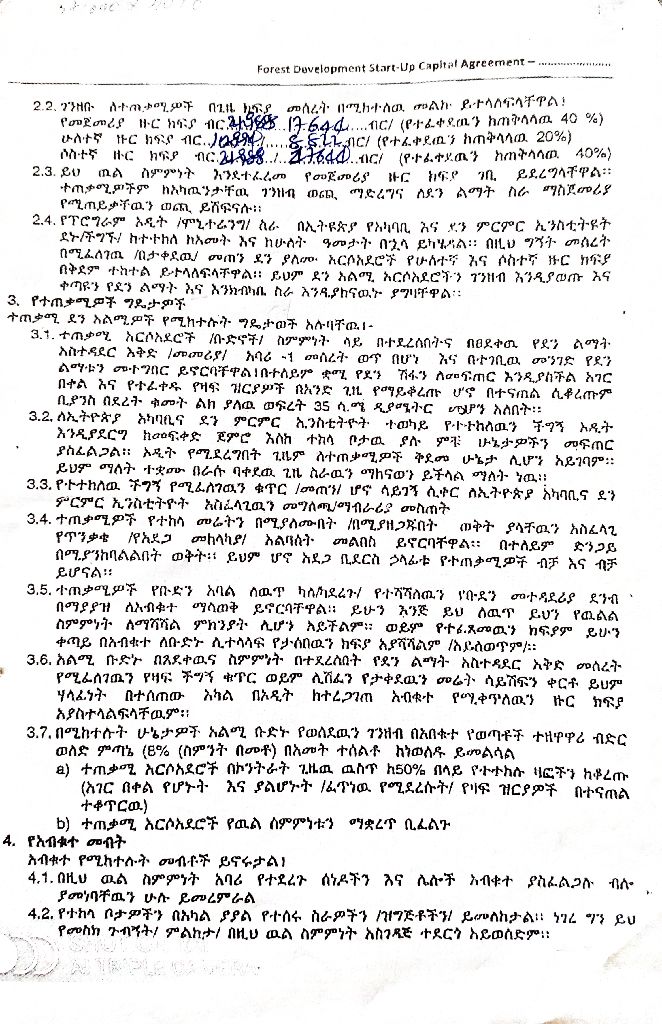 Forest Development Start-Up Capital Agreement – ........................
2.2. ገንዘቡ ለተጠቃሚዎች በጊዜ ክፍያ መሰረት በሚከተለዉ መልኩ ይተላለፍላቸዋል፤
የመጀመሪያ ዙር ክፍያ ብር 17644 ብር/ (የተፈቀደዉን ከጠቅላላዉ 40 %)
ሁለተኛ ዙር ክፍያ ብር 8822 ብር/ (የተፈቀደዉን ከጠቅላላዉ 20%)
ሶስተኛ ዙር ክፍያ ብር 17644 ብር/ (የተፈቀደዉን ከጠቅላላዉ 40%)
2.3. ይህ ዉል ስምምነት እንደተፈረመ የመጀመሪያ ዙር ክፍያ ገቢ ይደረግላቸዋል።
ተጠቃሚዎችም ከአካዉንታቸዉ ገንዘብ ወጪ ማድረግና ለደን ልማት ስራ ማስጀመሪያ
የሚጠይቃቸዉን ወጪ ይሸፍናሉ።
2.4. የፕሮግራም አዲት /ሞኒተሬንግ/ ስራ በኢትዩጵያ የአካባቢ እና ደን ምርምር ኢንስቲትዩት
ደኑ/ችግኙ/ ከተተከለ ከአመት እና ከሁለት ዓመታት በኋላ ይካሄዳል። በዚህ ግኝት መሰረት
በሚፈለገዉ /በታቀደዉ/ መጠን ደን ያለሙ አርሶአደሮች የሁለተኛ እና ሶስተኛ ዙር ክፍያ
በቅደም ተከተል ይተላለፍላቸዋል። ይህም ደን አልሚ አርሶአደሮችን ገንዘብ እንዲያወጡ እና
ቀጣዩን የደን ልማት እና እንክብካቤ ስራ እንዲያከናዉኑ ያግዛቸዋል።
3. የተጠቃሚዎች ግዴታዎች
ተጠቃሚ ደን አልሚዎች የሚከተሉት ግዴታወች አሉባቸዉ፤-
3.1. ተጠቃሚ አርሶአደሮች /ቡድኖች/ ስምምነት ላይ በተደረሰበትና በፀደቀዉ የደን ልማት
አስተዳደር እቅድ /መመሪያ/ አባሪ -1 መሰረት ወጥ በሆነ እና በተገቢዉ መንገድ የደን
ልማቱን መተግበር ይኖርባቸዋል፤በተለይም ቋሚ የደን ሽፋን ለመፍጠር እንዲያስችል አገር
በቀል እና የተፈቀዱ የዛፍ ዝርያዎች በአንድ ጊዜ የማይቆረጡ ሆኖ በተናጠል ሲቆረጡም
ቢያንስ በደረት ቁመት ልክ ያለዉ ወፍረት 35 ሴ.ሜ ዲያሜትር መሆን አለበት።
3.2. ለኢትዮጵያ አካባቢና ደን ምርምር ኢንስቲትዮት ተወካይ የተተከለዉን ችግኝ አዲት
እንዲያደርግ ከመፍቀድ ጀምሮ እስከ ተከላ ቦታዉ ያሉ ምቹ ሁኔታዎችን መፍጠር
ያስፈልጋል። አዲት የሚደረግበት ጊዜም ለተጠቃሚዎች ቅደመ ሁኔታ ሊሆን አይገባም።
ይህም ማለት ተቋሙ በራሱ ባቀደዉ ጊዜ ስራዉን ማከናወን ይችላል ማለት ነዉ።
3.3. የተተከለዉ ችግኝ የሚፈለገዉን ቁጥር /መጠን/ ሆኖ ሳይገኝ ሲቀር ለኢትዮጵያ አካባቢና ደን
ምርምር ኢንስቲትዮት አስፈላጊዉን መግለጫ/ማብራሪያ መስጠት
3.4. ተጠቃሚዎች የተከላ መሬትን በሚያለሙበት /በሚያዘጋጁበት ወቅት ያላቸዉን አስፈላጊ
የጥንቃቄ /የአደጋ መከላከያ/ አልባሳት መልበስ ይኖርባቸዋል። በተለይም ድንጋይ
በሚያንከባልልበት ወቅት። ይህም ሆኖ አደጋ ቢደርስ ኃላፊቱ የተጠቃሚዎች ብቻ እና ብቻ
ይሆናል።
3.5. ተጠቃሚዎች የቡድን አባል ለዉጥ ካለ/ካደረጉ/ የተሻሻለዉን የቡድን መተዳደሪያ ደንብ
በማያያዝ ለአብቁተ ማሳወቅ ይኖርባቸዋል። ይሁን እንጅ ይህ ለዉጥ ይህን የዉልል
ስምምነት ለማሻሻል ምክንያት ሊሆን አይችልም። ወይም የተፈጸመዉን ክፍያም ይሁን
ቀጣይ በአብቁተ ለቡድኑ ሊተላለፍ የታሰበዉን ክፍያ አያሻሽልም /አይለወጥም/።
3.6. አልሚ ቡድኑ በጸደቀዉና ስምምነት በተደረሰበት የደን ልማት አስተዳደር እቅድ መሰረት
የሚፈለገዉን የዛፍ ችግኝ ቁጥር ወይም ሊሸፈን የታቀደዉን መሬት ሳይሸፍን ቀርቶ ይህም
ሃላፊነት በተሰጠው አካል በአዲት ከተረጋገጠ አብቁተ የሚቀጥለዉን ዙር ክፍያ
አያስተላልፍላቸዉም።
3.7. በሚከተሉት ሁኔታዎች አልሚ ቡድኑ የወሰደዉን ገንዘብ በአበቁተ የወጣቶች ተዘዋዋሪ ብድር
ወለድ ምጣኔ (8% (ስምንት በመቶ) በአመት ተሰልቶ ከነወለዱ ይመልሳል
a) ተጠቃሚ አርሶአደሮች በኮንትራት ጊዜዉ ዉስጥ ከ50% በላይ የተተከሉ ዛፎችን ከቆረጡ
(አገር በቀል የሆኑት እና ያልሆኑት /ፈጥነዉ የሚደረሱት/ የዛፍ ዝርያዎች በተናጠል
ተቆጥርዉ)
b) ተጠቃሚ አርሶአደሮች የዉል ስምምነቱን ማቋረጥ ቢፈልጉ
4. የአብቁተ መብት
አብቁተ የሚከተሉት መብቶች ይኖሩታል፤
4.1. በዚህ ዉል ስምምነት አባሪ የተደረጉ ሰነዶችን እና ሌሎች አብቁተ ያስፈልጋሉ ብሎ
ያመነባቸዉን ሁሉ ይመረምራል
4.2. የተከላ ቦታዎችን በአካል ያያል የተሰሩ ስራዎችን /ዝግጅቶችን/ ይመለከታል። ነገረ ግን ይህ
የመስክ ጉብኝት/ ምልከታ/ በዚህ ዉል ስምምነት አስገዳጅ ተደርጎ አይወሰድም።